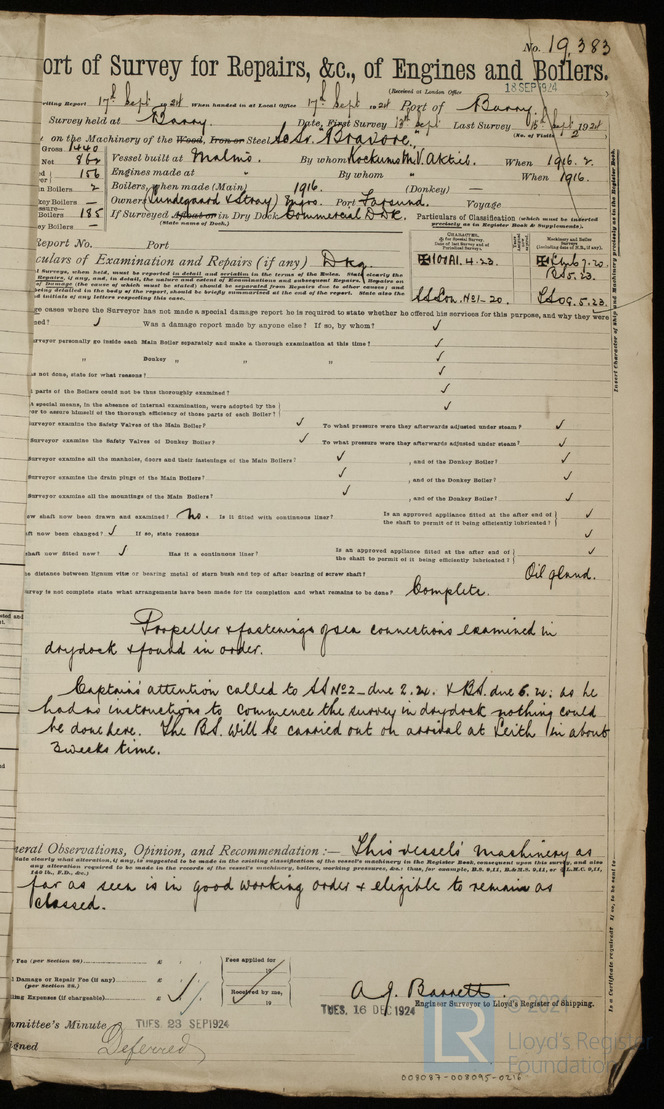 No. 19,383
ort of Survey for Repairs, &c., of Engines and Boilers.
(Received at London Office 18 SEP 1924
riting Report 17th Sept 1924 When handed in at Local Office 17th Sept 1924 Port of Barry
Survey held at Barry. Date, First Survey 13th Sept Last Survey 15th Sept 1924
(No. of Visits 2
on the Machinery of the Wood, Iron or Steel "Bravore"
Gross 1440
Net 862 Vessel built at Malmö. By whom Kockums M.V. Aktieb. When 1916. 2.
156 Engines made at " By whom " When 1916.
n Boilers 2 Boilers, when made (Main) 1916. (Donkey) —
key Boilers — Owners Port Farsund. Voyage
Boilers 185 If Surveyed Afloat or in Dry Dock Commercial D.Dk.
(State name of Dock.)
ey Boilers —
Particulars of Classification (which must be inserted
precisely as in Register Book & Supplements).
Report No. Port
culars of Examination and Repairs (if any) Dkg.
CHARACTER.
Machinery and Boiler
Surveys
4.23.
BS 5.23.
SS Lon. No1-20.
ge cases where the Surveyor has not made a special damage report he is required to state whether he offered his services for this purpose, and why they were
ned? ✓ Was a damage report made by anyone else? If so, by whom? ✓
urveyor personally go inside each Main Boiler separately and make a thorough examination at this time? ✓
" Donkey " " " ✓
as not done, state for what reasons? ✓
t parts of the Boilers could not be thus thoroughly examined? ✓
t special means, in the absence of internal examination, were adopted by the
yor to assure himself of the thorough efficiency of those parts of each Boiler? ✓
urveyor examine the Safety Valves of the Main Boiler? ✓ To what pressure were they afterwards adjusted under steam? ✓
Surveyor examine the Safety Valves of Donkey Boiler? ✓ To what pressure were they afterwards adjusted under steam? ✓
Surveyor examine all the manholes, doors and their fastenings of the Main Boilers? ✓ , and of the Donkey Boiler? ✓
Surveyor examine the drain plugs of the Main Boilers? ✓ , and of the Donkey Boiler? ✓
Surveyor examine all the mountings of the Main Boilers? ✓ , and of the Donkey Boiler? ✓
ew shaft now been drawn and examined? no. Is it fitted with continuous liner? Is an approved appliance fitted at the after end of
the shaft to permit of it being efficiently lubricated? ✓
aft now been changed? ✓ If so, state reasons ✓
shaft now fitted new? ✓ Has it a continuous liner? Is an approved appliance fitted at the after end of
the shaft to permit of it being efficiently lubricated? ✓
he distance between lignum vitæ or bearing metal of stern bush and top of after bearing of screw shaft? Oil gland.
urvey is not complete state what arrangements have been made for its completion and what remains to be done? Complete.
Propeller & fastenings of sea connections examined in
drydock & found in order.
Captain's attention called to SS No2 due 2.24. & BS. due 5.24: as he
had no instructions to commence the survey in drydock nothing could
be done here. The BS. will be carried out on arrival at Leith in about
3 weeks time.
neral Observations, Opinion, and Recommendation :— This vessels' machinery as
far as seen is in good working order & eligible to remain as
classed.
Fee (per Section 28)
Fees applied for
19
l Damage or Repair Fee (if any)
(per Section 28.)
Received by me,
19
lling Expenses (if chargeable)
A. J. Barrett.
Engineer Surveyor to Lloyd's Register of Shipping.
TUES. 16 DEC 1924
mmittee's Minute TUES. 23 SEP 1924
igned Deferred
LR
Lloyd's Register
Foundation
008087-008095-0216